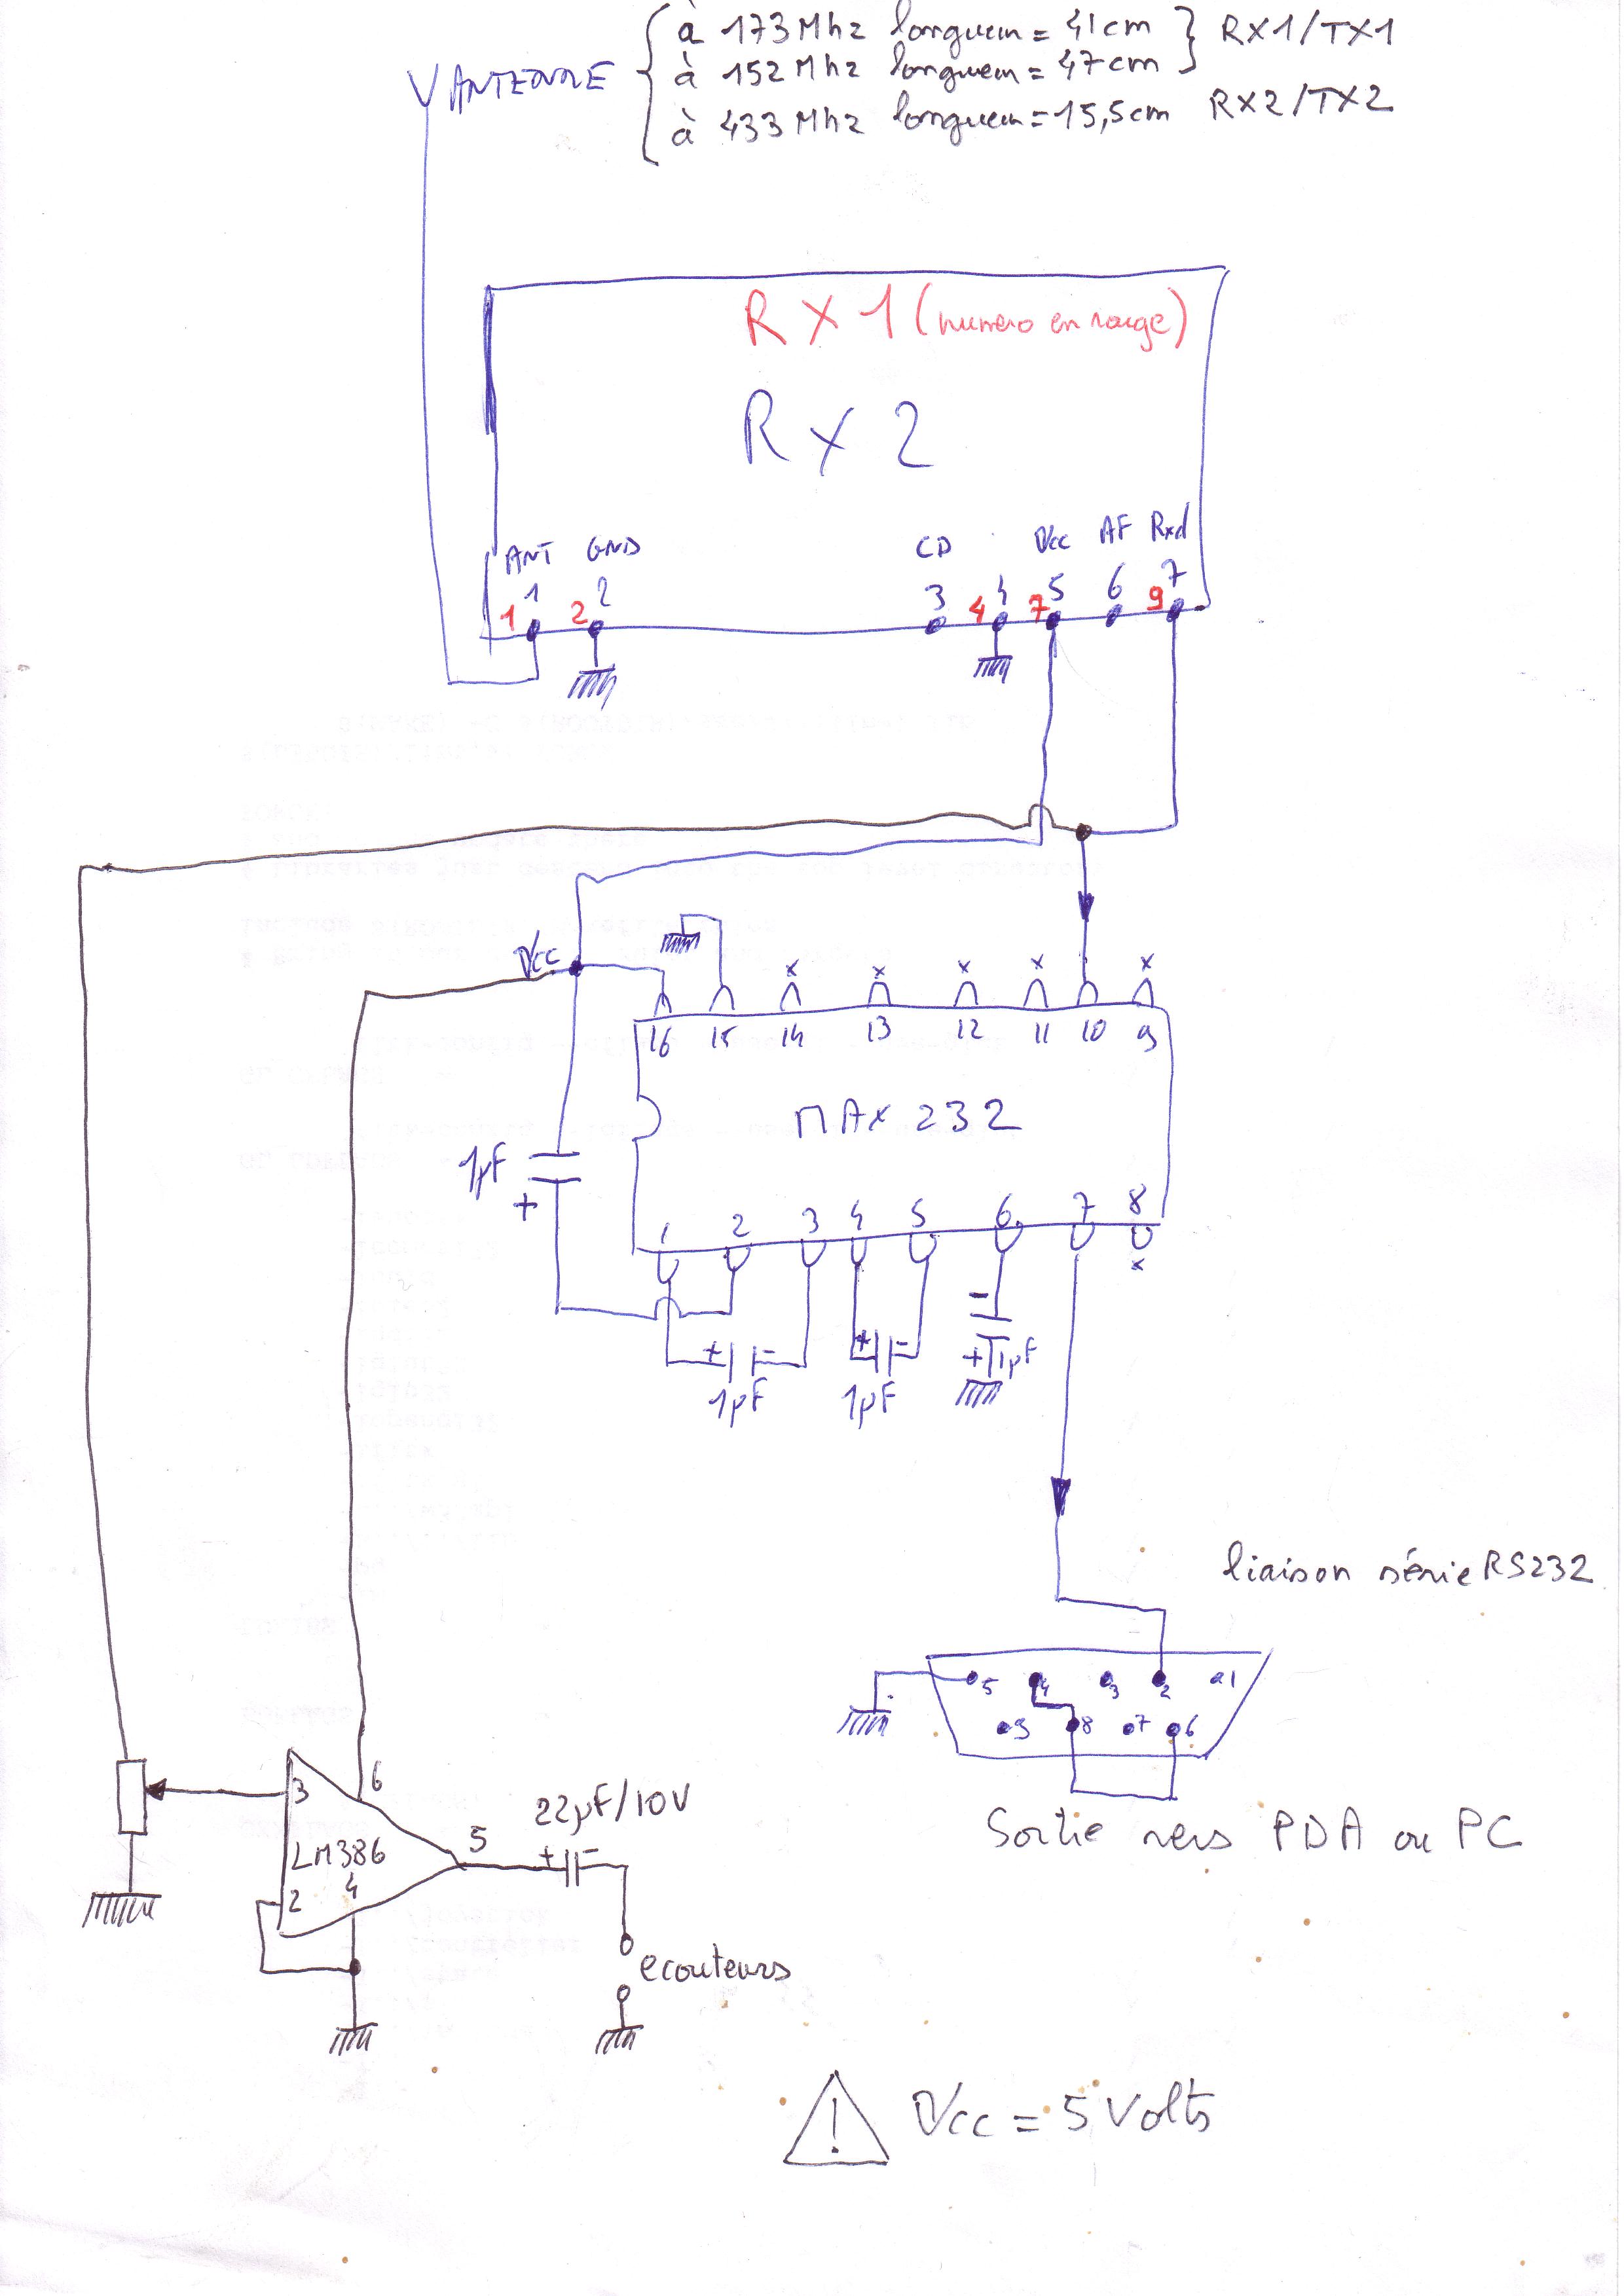 ANTENNE
à 173 Mhz longueur = 41 cm } RX1/TX1
à 152 Mhz longueur = 47 cm
à 433 Mhz longueur = 15,5 cm RX2/TX2
RX1 (numero en rouge)
RX2
ANT GND CD Vcc AF Rxd
1 2 3 4 5 6 7
1 2 4 7 9
Vcc
x x x x x
16 15 14 13 12 11 10 9
MAX 232
1µF
+
1 2 3 4 5 6 7 8
x
+ - + - - +
1µF 1µF 1µF
liaison série RS232
5 4 3 2 1
9 8 7 6
Sortie vers PDA ou PC
3 6
LM386 5
2 4
22µF/10V
+ -
ecouteurs
! Vcc = 5 Volts